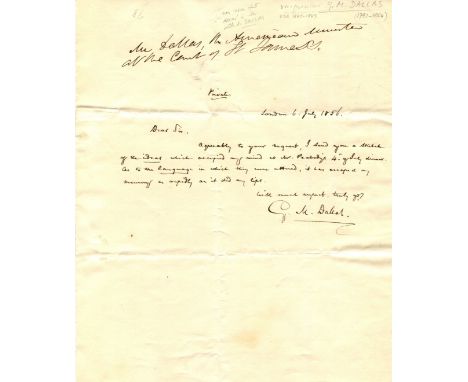 86
DALLAS
Vicepresident G. M. DALLAS
USA 1845-1849
(1792-1864)
Mr Dallas, the American Minister
at the Court of St James's.
Private
London 6. July 1856.
Dear Sir.
Agreeably to your request, I send you a sketch
of the ideas which occupied my mind at Mr. Peabody's 4th of July dinner.
As to the language in which they were uttered, it has escaped my
memory as rapidly as it did my lips.
With much respect, truly yrs
G. M. Dallas.